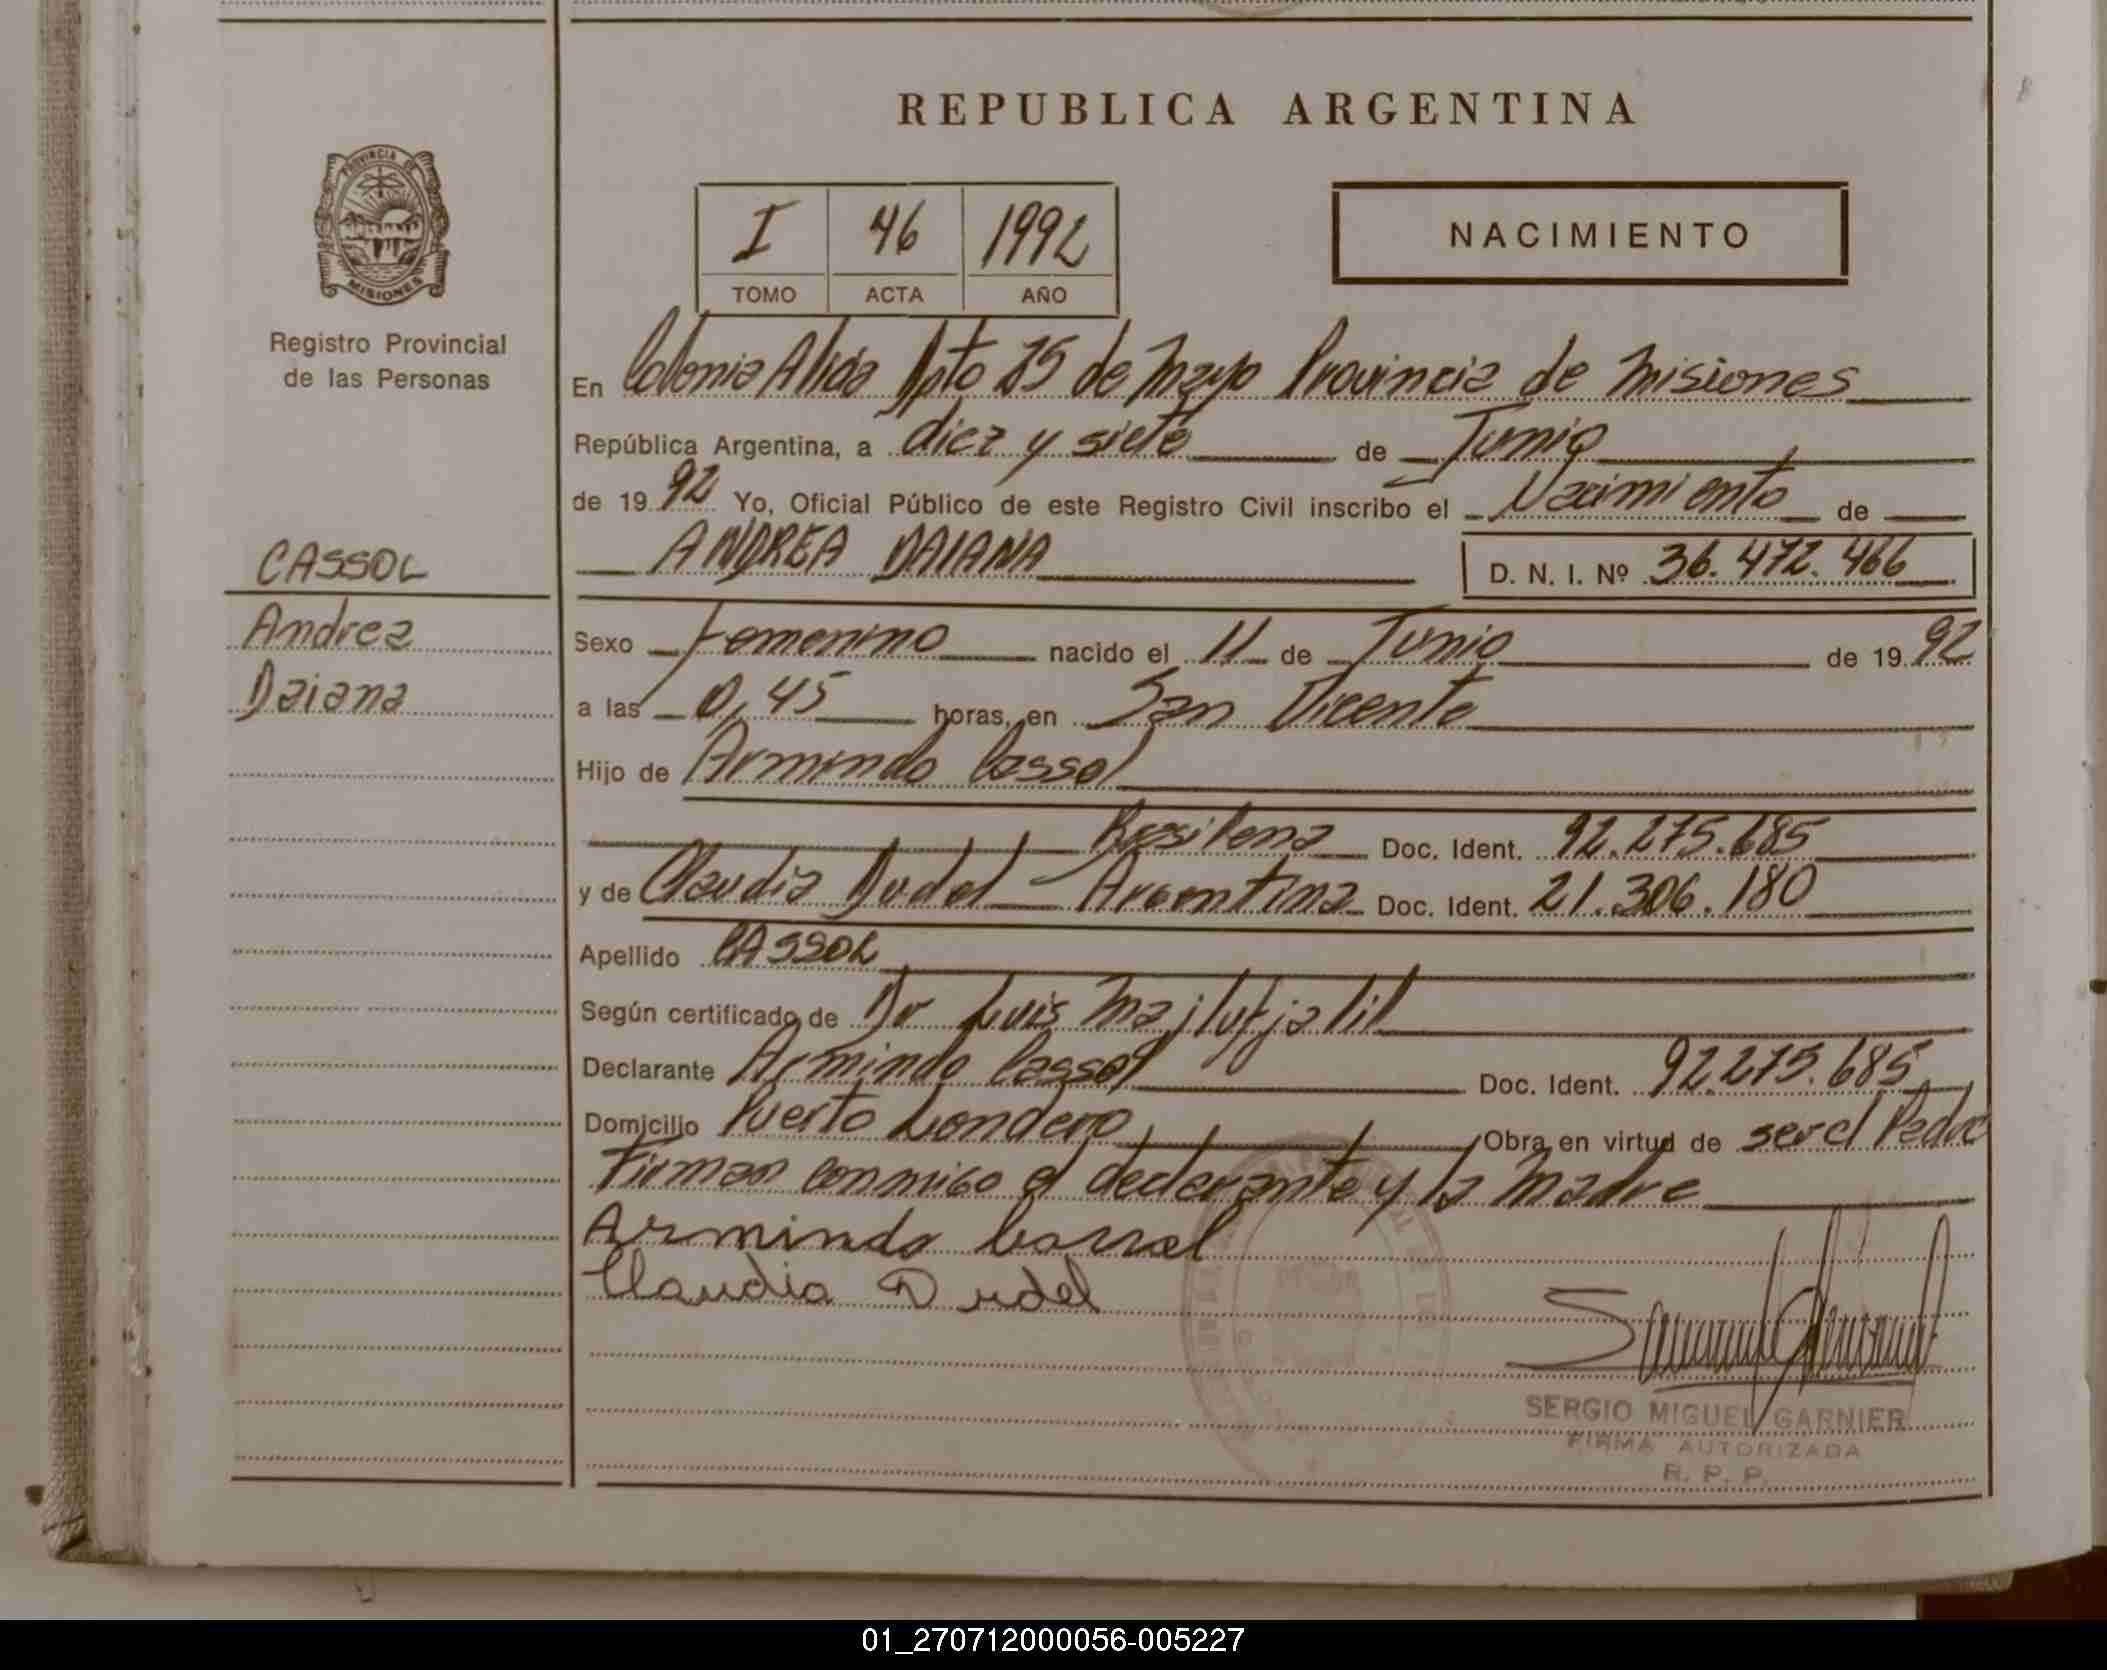 REPUBLICA ARGENTINA
PROVINCIA DE
MISIONES
Registro Provincial
de las Personas
I 46 1992
TOMO ACTA AÑO
NACIMIENTO
En Colonia Alicia Dpto 25 de Mayo Provincia de Misiones
República Argentina, a diez y siete de Junio
de 19 92 Yo, Oficial Público de este Registro Civil inscribo el Nacimiento de
ANDREA DAIANA D. N. I. Nº 36.472.466
CASSOL
Andrea
Daiana
Sexo Femenino nacido el 11 de Junio de 19 92
a las 0,45 horas, en San Vicente
Hijo de Armindo Cassol
Brasilena Doc. Ident. 92.275.685
y de Claudia Dudel Argentina Doc. Ident. 21.306.180
Apellido CASSOL
Según certificado de Dr Luis Majlufjalil
Declarante Armindo Cassol Doc. Ident. 92.275.685
Domicilio Puerto Londero Obra en virtud de ser el Padre
Firman conmigo el declarante y la Madre
Armindo Cassol
Claudia Dudel
SERGIO MIGUEL GARNIER
FIRMA AUTORIZADA
R. P. P.
01_270712000056-005227